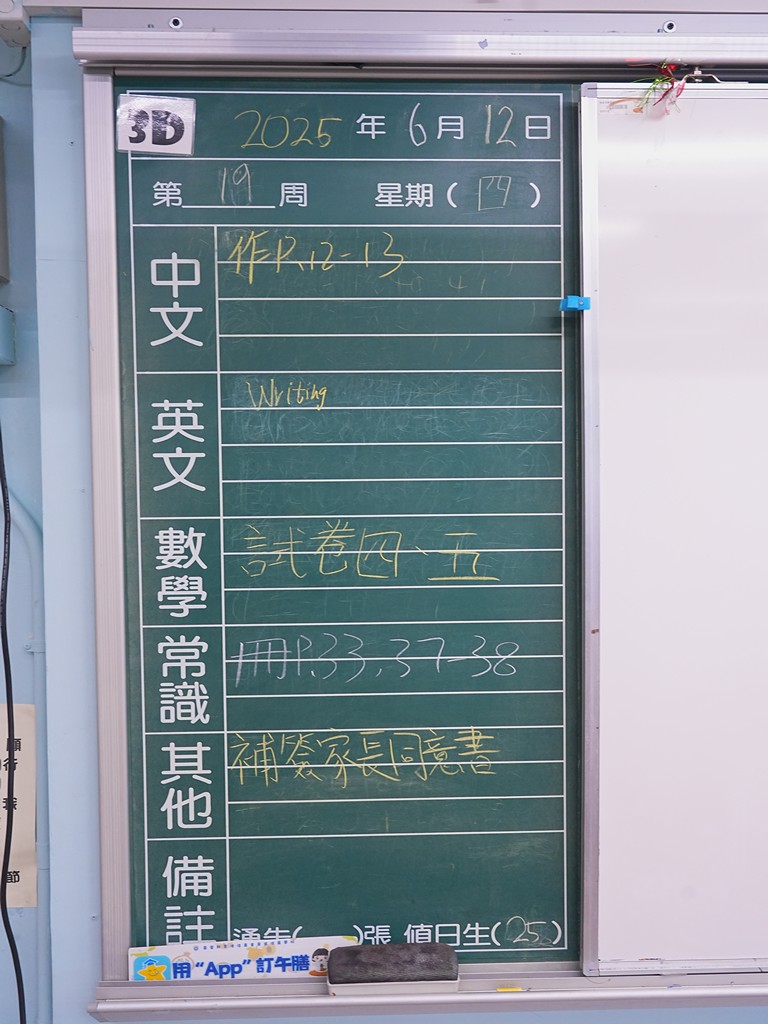 3D
2025年6月12日
第19周 星期(四)
中文
作P.12-13
英文
Writing
數學
試卷四、五
常識
冊P.33,37-38
其他
補簽家長同意書
備註
通告( )張 值日生(25)
用“App”訂午膳